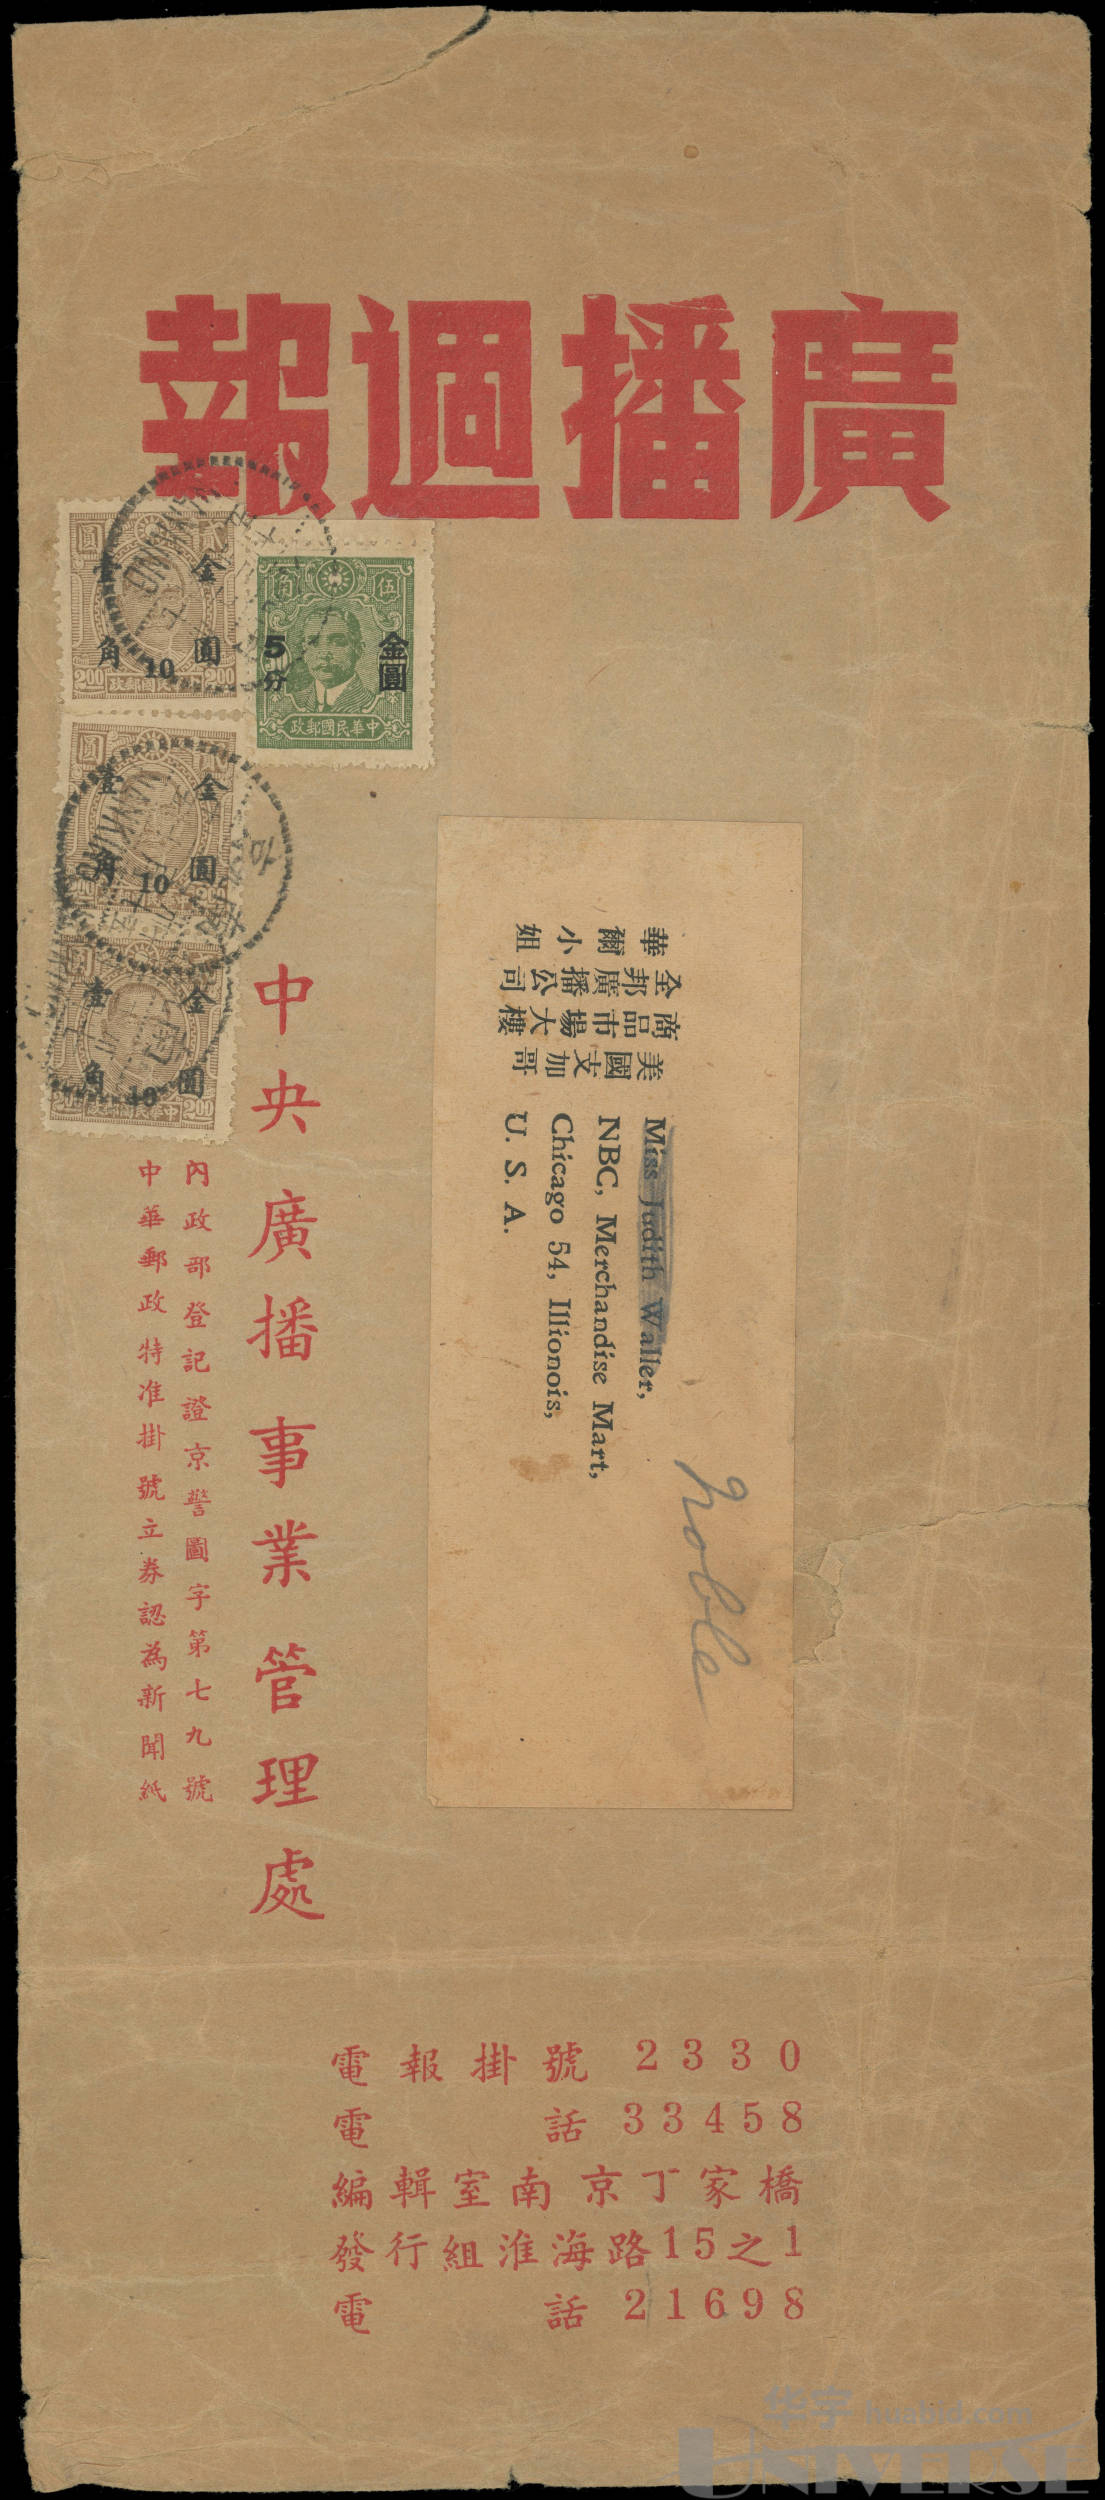 廣播週報
金圓
壹角
10
貳圓
200
中華民國郵政
金圓
5分
伍角
中華民國郵政
金圓
壹角
10
貳圓
200
中華民國郵政
金圓
壹角
10
200
中華民國郵政
NANKING
NANKING
華爾小姐
全邦廣播公司
商品市場大樓
美國支加哥
Miss Judith Waller,
NBC, Merchandise Mart,
Chicago 54, Illionois,
U. S. A.
noble
中央廣播事業管理處
內政部登記證京警圖字第七九號
中華郵政特准掛號立券認為新聞紙
電報掛號 2330
電話 33458
編輯室南京丁家橋
發行組淮海路15之1
電話 21698
华宇 huabid.com
UNIVERSE